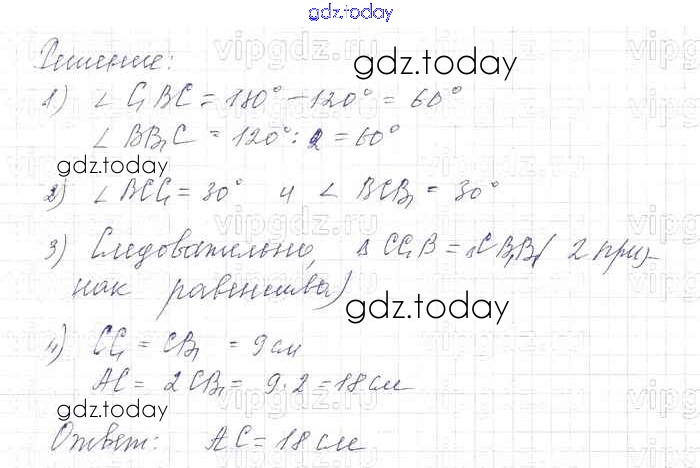 gdz.today
Решение:
gdz.today
1) ∠ C₁BC = 180° − 120° = 60°
∠ BB₁C = 120° : 2 = 60°
gdz.today
2) ∠ BCC₁ = 30° и ∠ BCB₁ = 30°
3) Следовательно, ΔCC₁B = ΔCB₁B ( 2 приз-
нак равенства)
gdz.today
4) CC₁ = CB₁ = 9 см
AC = 2CB₁ = 9 · 2 = 18 см
gdz.today
Ответ: AC = 18 см